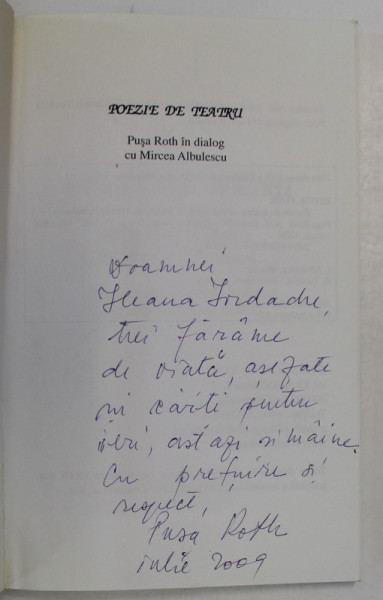 POEZIE DE TEATRU
Pușa Roth în dialog
cu Mircea Albulescu
Doamnei
Ileana Iordache,
trei fărâme
de viață, așezate
în cărți pentru
ieri, astăzi și mâine.
Cu prețuire și
respect,
Pușa Roth
iulie 2009